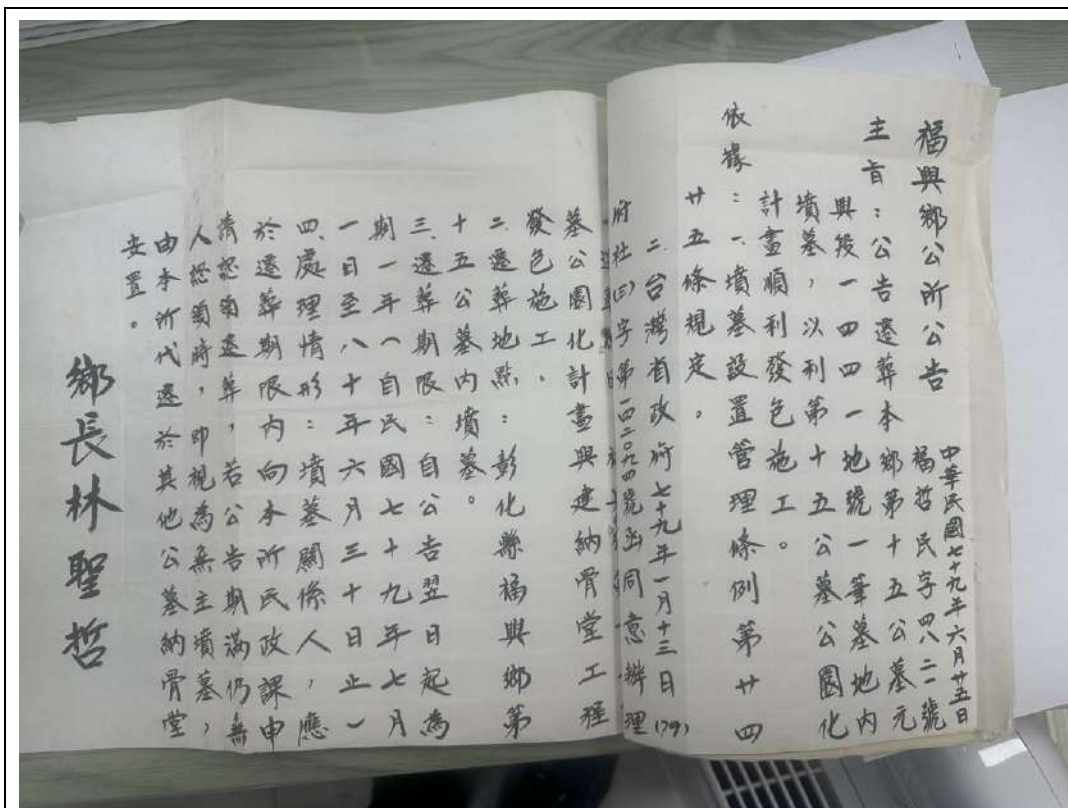 福興鄉公所公告
中華民國七十九年六月廿五日
福哲民字四八二一號
主旨：公告遷葬本鄉第十五公墓元
興段一四四一地號一筆墓地內
墳墓，以利第十五公墓公園化
計畫順利發包施工。
依據：一、墳墓設置管理條例第廿四
廿五條規定。
二、台灣省政府七十九年一月十三日(79)
府社(三)字第一四二0九四號函同意辦理
墓公園化計畫興建納骨堂工程
發包施工。
二、遷葬地點：彰化縣福興鄉第
十五公墓內墳墓。
三、遷葬期限：自公告翌日起為
期一年(自民國七十九年七月
一日至八十年六月三十日止)
四、處理情形：墳墓關係人，應
於遷葬期限內向本所民政課申
請認領遷葬，若公告期滿仍無
人認領時，即視為無主墳墓，
由本所代遷於其他公墓納骨堂
安置。
鄉長林聖哲